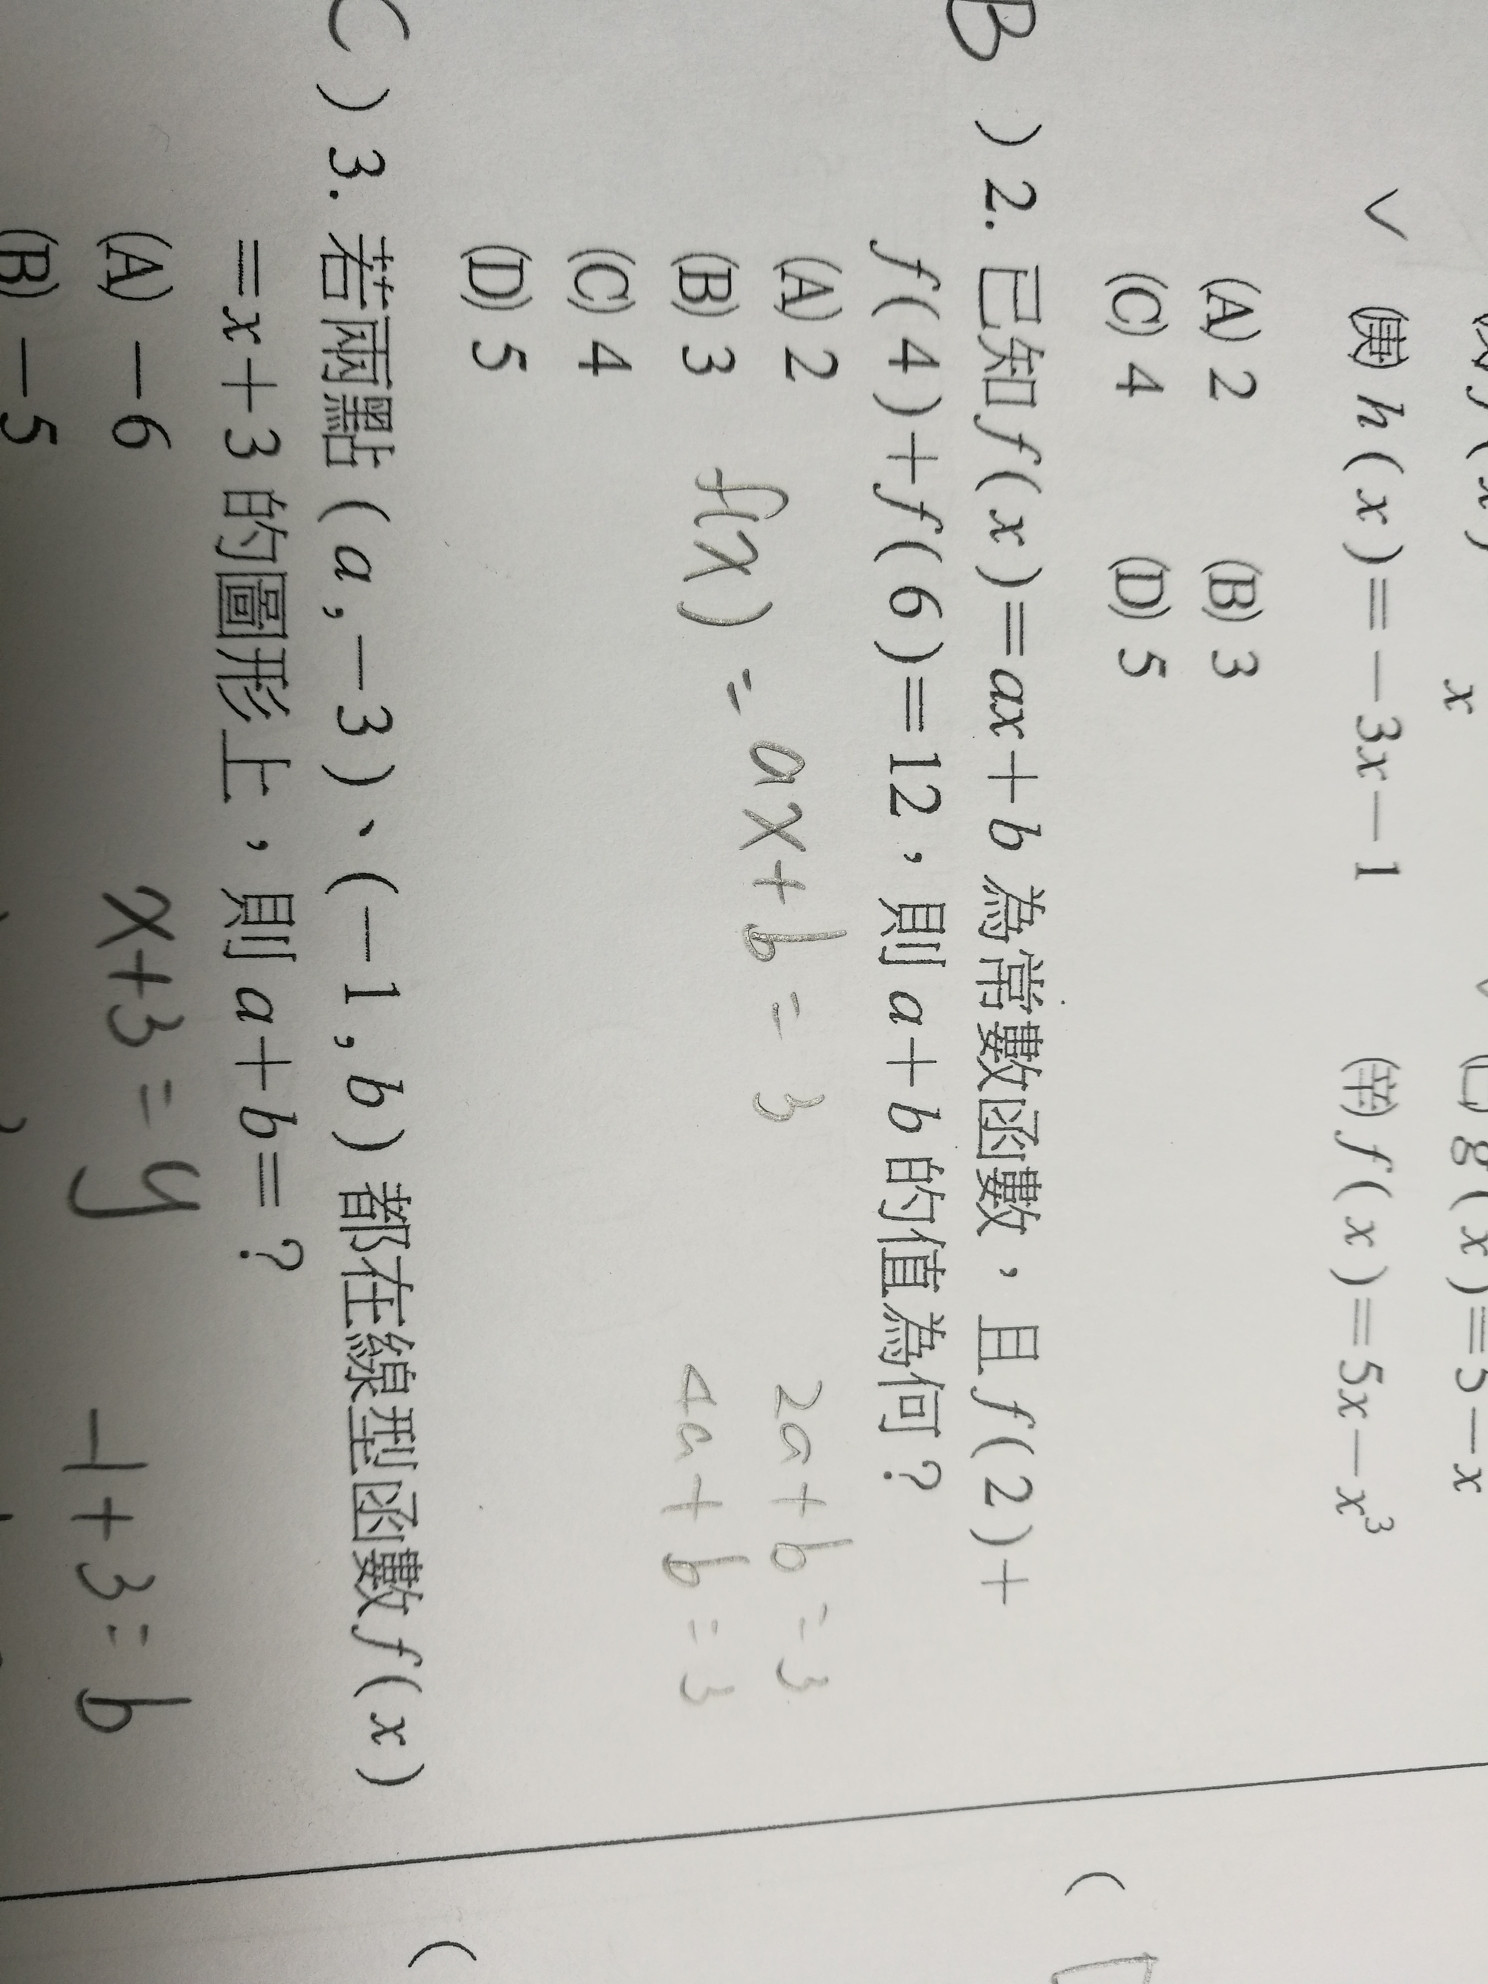 g(x)=5-x
✓ (庚) h(x)=-3x-1 (辛) f(x)=5x-x³
(A) 2 (B) 3
(C) 4 (D) 5
B )2. 已知 f(x)=ax+b 為常數函數，且 f(2)+
f(4)+f(6)=12，則 a+b 的值為何？
(A) 2
(B) 3
(C) 4
(D) 5
f(x) = ax+b = 3
2a+b=3
4a+b=3
C )3. 若兩點(a,-3)、(-1,b)都在線型函數 f(x)
=x+3 的圖形上，則 a+b=？
(A) -6
(B) -5
x+3=y
-1+3=b